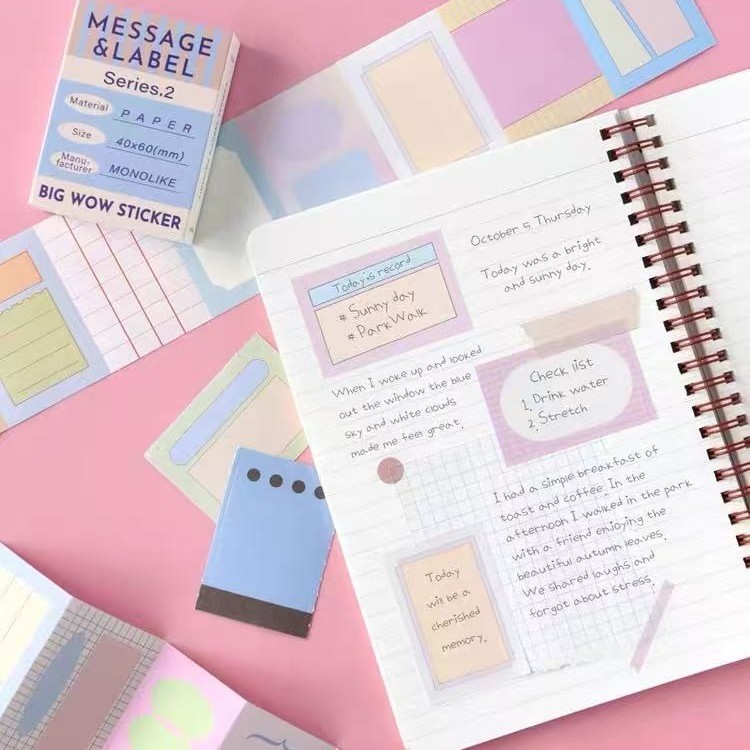 MESSAGE
&LABEL
Series.2
Material PAPER
Size 40x60(mm)
Manu-
facturer MONOLIKE
BIG WOW STICKER
October 5 Thursday
Today was a bright
and sunny day.
Today is record
# Sunny day
# Park Walk
When I woke up and looked
out the window the blue
sky and white clouds
made me feel great.
Check list
1. Drink water
2. Stretch
I had a simple breakfast of
toast and coffee. In the
afternoon I walked in the park
with a friend enjoying the
beautiful autumn leaves.
We shared laughs and
forgot about stress.
Today
will be a
cherished
memory.